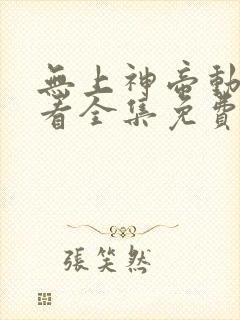 無上神帝動
看全集免費
張笑然